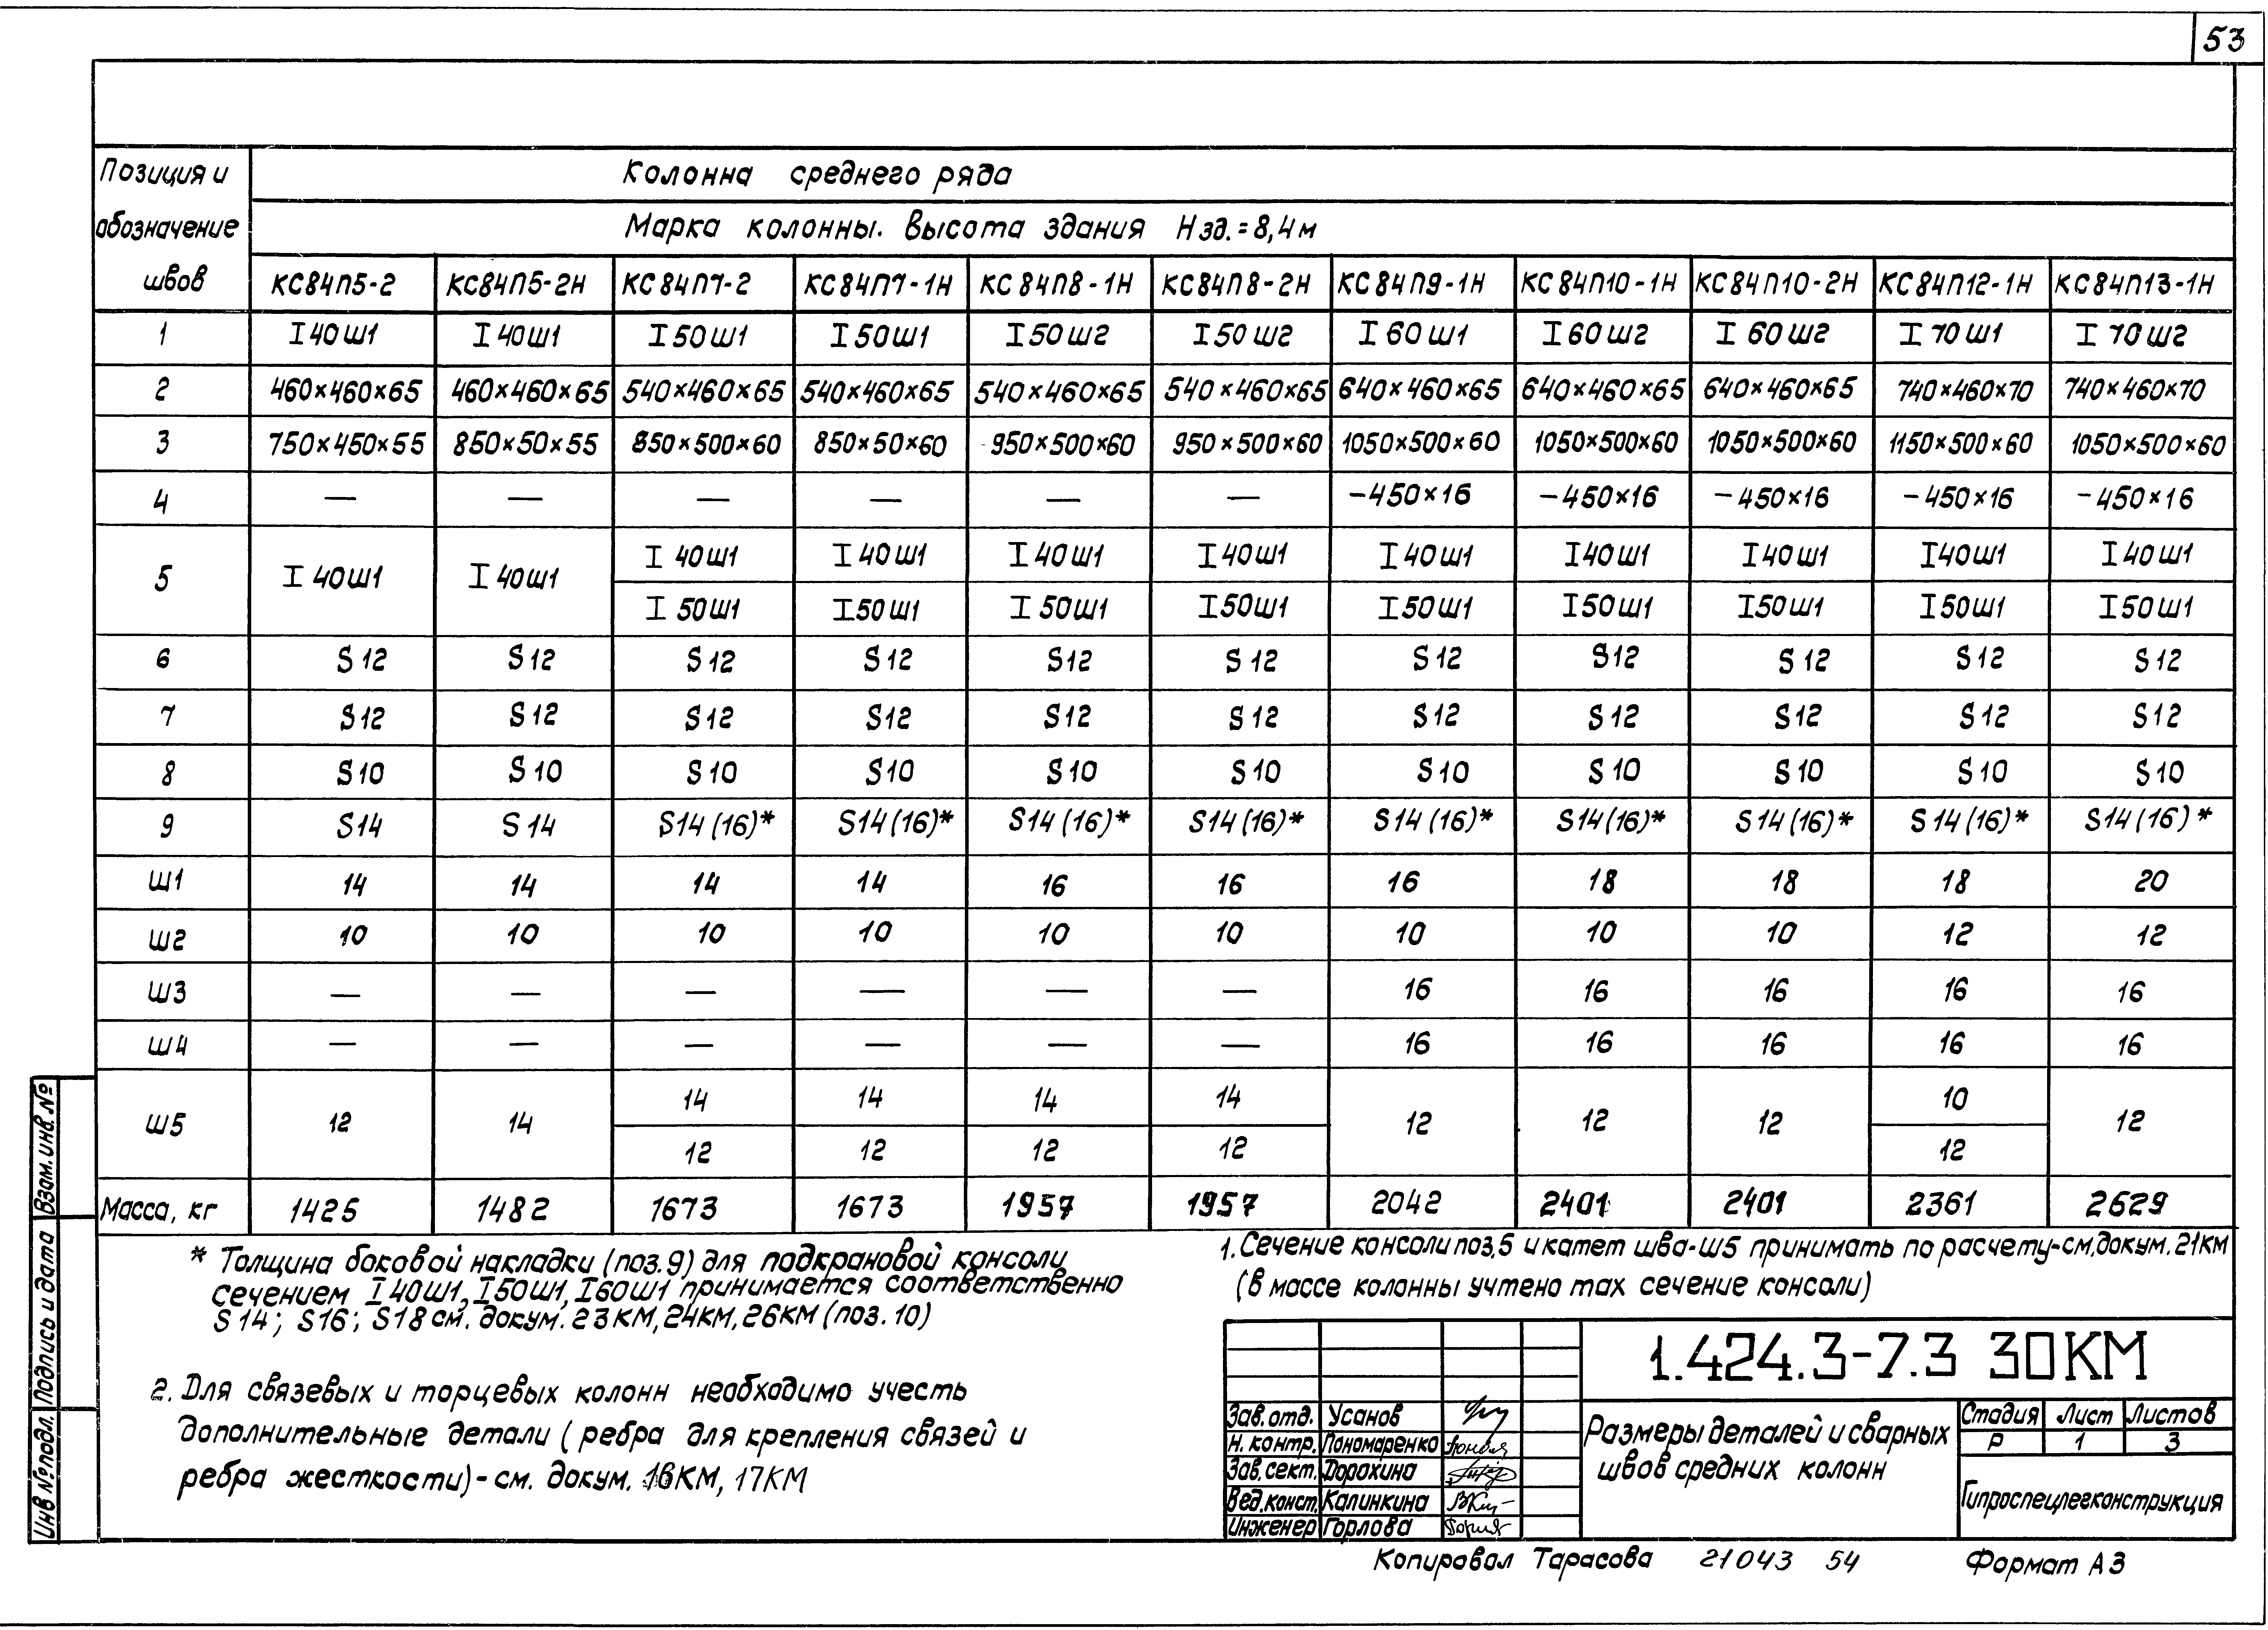 53
Позиция и обозначение швов
Колонна среднего ряда
Марка колонны. Высота здания Нзд.=8,4м
КС84П5-2 КС84П5-2Н КС84П7-2 КС84П7-1Н КС84П8-1Н КС84П8-2Н КС84П9-1Н КС84П10-1Н КС84П10-2Н КС84П12-1Н КС84П13-1Н
1 I40Ш1 I40Ш1 I50Ш1 I50Ш1 I50Ш2 I50Ш2 I60Ш1 I60Ш2 I60Ш2 I70Ш1 I70Ш2
2 460×460×65 460×460×65 540×460×65 540×460×65 540×460×65 540×460×65 640×460×65 640×460×65 640×460×65 740×460×70 740×460×70
3 750×450×55 850×50×55 850×500×60 850×50×60 950×500×60 950×500×60 1050×500×60 1050×500×60 1050×500×60 1150×500×60 1050×500×60
4 — — — — — — -450×16 -450×16 -450×16 -450×16 -450×16
5 I40Ш1 I40Ш1 I40Ш1 I40Ш1 I40Ш1 I40Ш1 I40Ш1 I40Ш1 I40Ш1 I40Ш1 I40Ш1
I50Ш1 I50Ш1 I50Ш1 I50Ш1 I50Ш1 I50Ш1 I50Ш1 I50Ш1 I50Ш1
6 S12 S12 S12 S12 S12 S12 S12 S12 S12 S12 S12
7 S12 S12 S12 S12 S12 S12 S12 S12 S12 S12 S12
8 S10 S10 S10 S10 S10 S10 S10 S10 S10 S10 S10
9 S14 S14 S14(16)* S14(16)* S14(16)* S14(16)* S14(16)* S14(16)* S14(16)* S14(16)* S14(16)*
Ш1 14 14 14 14 16 16 16 18 18 18 20
Ш2 10 10 10 10 10 10 10 10 10 12 12
Ш3 — — — — — — 16 16 16 16 16
Ш4 — — — — — — 16 16 16 16 16
Ш5 12 14 14 14 14 14 12 12 12 10 12
12 12 12 12 12
Масса, кг 1425 1482 1673 1673 1957 1957 2042 2401 2401 2361 2629
* Толщина боковой накладки (поз.9) для подкрановой консоли
сечением I40Ш1, I50Ш1, I60Ш1 принимается соответственно
S14; S16; S18 см. докум. 23КМ, 24КМ, 26КМ (поз. 10)
1. Сечение консоли поз,5 и катет шва-Ш5 принимать по расчету-см,докум. 21КМ
(в массе колонны учтено max сечение консоли)
2. Для связевых и торцевых колонн необходимо учесть
дополнительные детали (ребра для крепления связей и
ребра жесткости)-см. докум. 16КМ, 17КМ
1.424.3-7.3 30КМ
Зав.отд. Усанов
Н. контр. Пономаренко
Зав.сект. Дорохина
Вед.конст. Калинкина
Инженер Горлова
Размеры деталей и сварных
швов средних колонн
Стадия Лист Листов
Р 1 3
Гипроспецлегконструкция
Копировал Тарасова 21043 54 Формат А3
Взам.инв.№
Подпись и дата
Инв №подл.